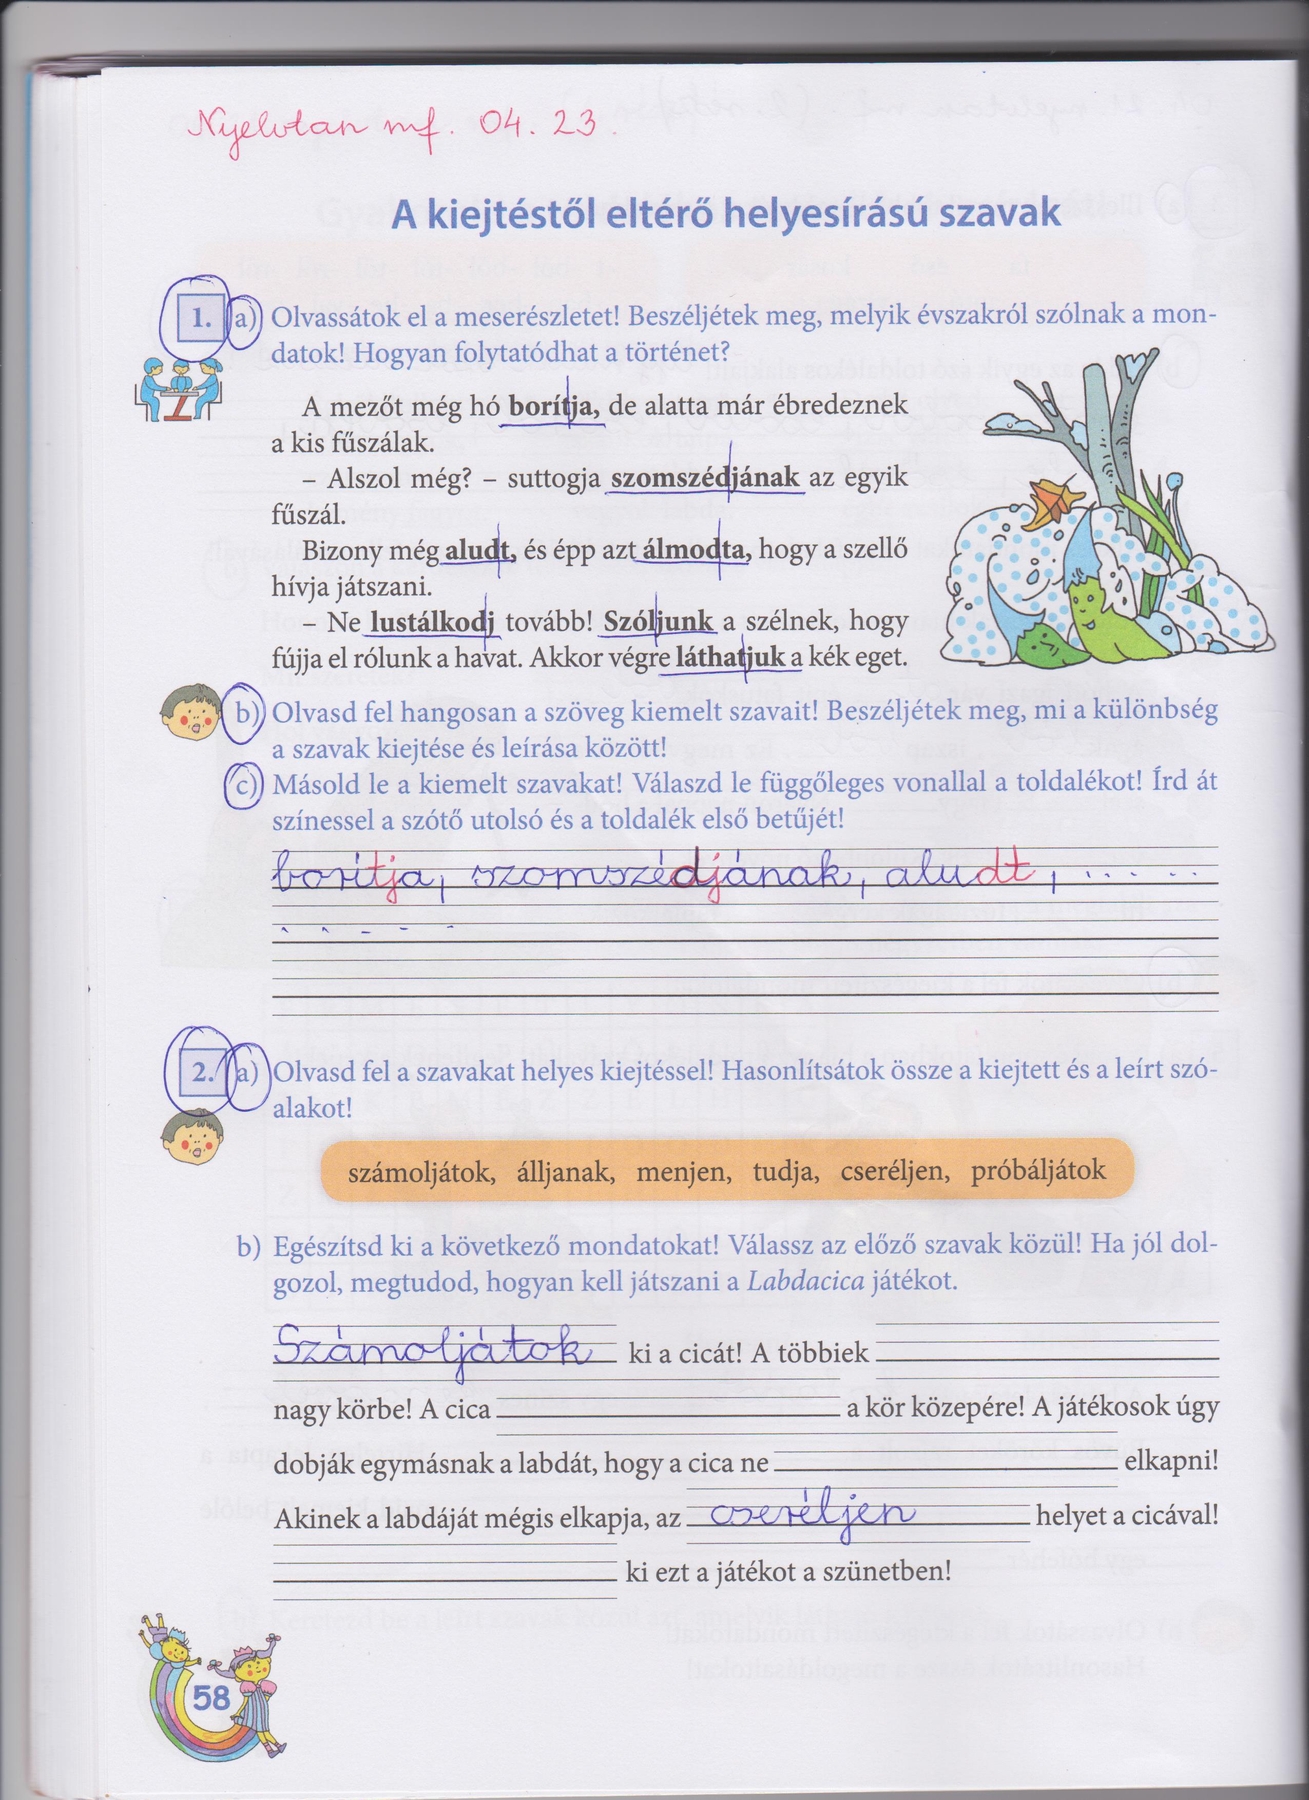 Nyelvtan mf. 04. 23.
A kiejtéstől eltérő helyesírású szavak
1. a) Olvassátok el a meserészletet! Beszéljétek meg, melyik évszakról szólnak a mon-
datok! Hogyan folytatódhat a történet?
A mezőt még hó borítja, de alatta már ébredeznek
a kis fűszálak.
– Alszol még? – suttogja szomszédjának az egyik
fűszál.
Bizony még aludt, és épp azt álmodta, hogy a szellő
hívja játszani.
– Ne lustálkodj tovább! Szóljunk a szélnek, hogy
fújja el rólunk a havat. Akkor végre láthatjuk a kék eget.
b) Olvasd fel hangosan a szöveg kiemelt szavait! Beszéljétek meg, mi a különbség
a szavak kiejtése és leírása között!
c) Másold le a kiemelt szavakat! Válaszd le függőleges vonallal a toldalékot! Írd át
színessel a szótő utolsó és a toldalék első betűjét!
borítja, szomszédjának, aludt, . . . . .
. . - - -
2. a) Olvasd fel a szavakat helyes kiejtéssel! Hasonlítsátok össze a kiejtett és a leírt szó-
alakot!
számoljátok, álljanak, menjen, tudja, cseréljen, próbáljátok
b) Egészítsd ki a következő mondatokat! Válassz az előző szavak közül! Ha jól dol-
gozol, megtudod, hogyan kell játszani a Labdacica játékot.
Számoljátok ki a cicát! A többiek
nagy körbe! A cica a kör közepére! A játékosok úgy
dobják egymásnak a labdát, hogy a cica ne elkapni!
Akinek a labdáját mégis elkapja, az cseréljen helyet a cicával!
ki ezt a játékot a szünetben!
58